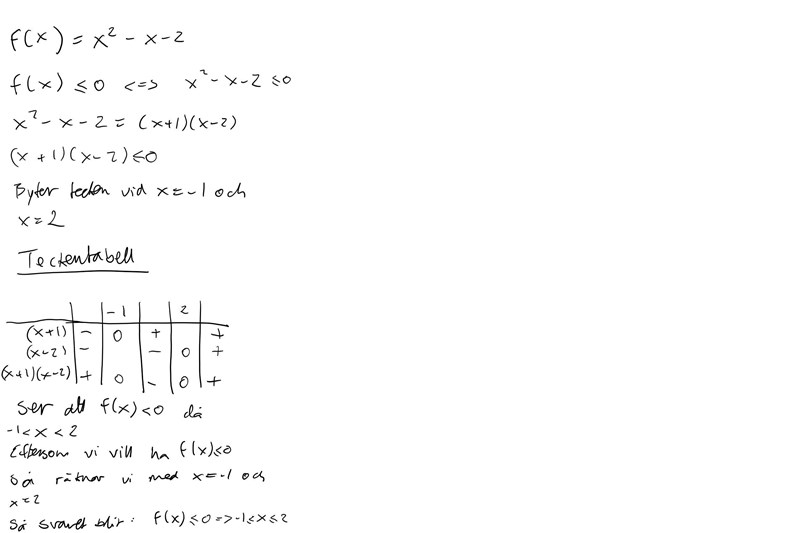 f(x) = x² - x - 2
f(x) ≤ 0 <=> x² - x - 2 ≤ 0
x² - x - 2 = (x+1)(x-2)
(x+1)(x-2) ≤ 0
Byter tecken vid x = -1 och
x = 2
Teckentabell
-1 2
(x+1) - 0 + +
(x-2) - - 0 +
(x+1)(x-2) + 0 - 0 +
Ser att f(x) < 0 då
-1 < x < 2
Eftersom vi vill ha f(x) ≤ 0
så räknar vi med x = -1 och
x = 2
Så svaret blir: f(x) ≤ 0 => -1 ≤ x ≤ 2